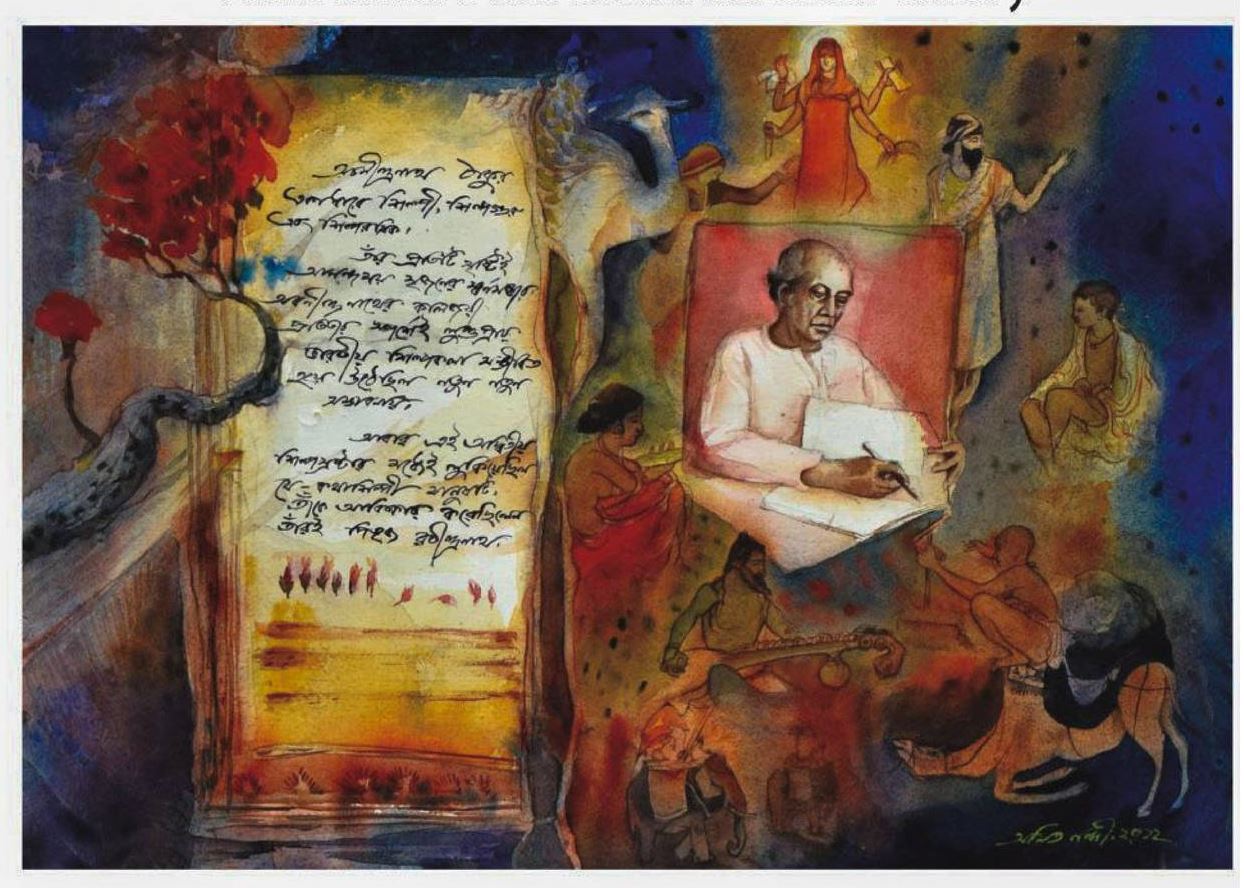 অবনীন্দ্রনাথ ঠাকুর
একাধারে শিল্পী, শিল্পগুরু
এবং শিল্পরসিক।
তাঁর প্রতিটি সৃষ্টিই
আনন্দময়
অবনীন্দ্রনাথের কালজয়ী
প্রতিভার স্পর্শেই লুপ্তপ্রায়
ভারতীয় শিল্পকলা সঞ্জীবিত
হয়ে উঠেছিল নতুন নতুন
সম্ভাবনায়।
আবার এই অদ্বিতীয়
শিল্পস্রষ্টার মধ্যেই লুকিয়েছিল
যে-কথাশিল্পী মানুষটি,
তাঁকে আবিষ্কার করেছিলেন
তাঁরই পিতৃব্য রবীন্দ্রনাথ।
২০২২